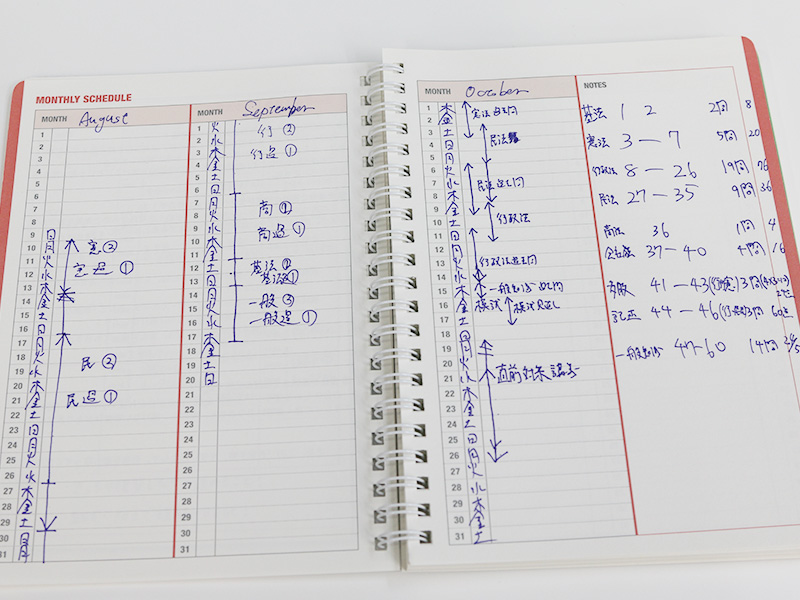 MONTHLY SCHEDULE
MONTH August
1
2
3
4
5
6
7
8
9 日
10 月 憲②
11 火
12 水 憲過①
13 木
14 金
15 土
16 日
17 月
18 火
19 水 民②
20 木
21 金 民過①
22 土
23 日
24 月
25 火
26 水
27 木
28 金
29 土
30 日
31 月
MONTH September
1 火 行②
2 水
3 木 行過①
4 金
5 土
6 日
7 月 商②
8 火
9 水 商過①
10 木
11 金
12 土 基法②
13 日 基過①
14 月
15 火 一般②
16 水 一般過①
17 木
18 金
19 土
20 日
21
22
23
24
25
26
27
28
29
30
31
MONTH October
1 木 憲法過問
2 金
3 土 民法
4 日
5 月
6 火 民法過問
7 水
8 木
9 金 行政法
10 土
11 日
12 月 行政法過問
13 火
14 水 一般知識過問
15 木 模試 模試見直し
16 金
17 土
18 日
19 月
20 火 直前対策
21 水
22 木
23 金
24 土
25 日
26 月
27 火
28 水
29 木
30 金
31 土
NOTES
基法 1 2 2問 8
憲法 3 — 7 5問 20
行政法 8 — 26 19問 76
民法 27 — 35 9問 36
商法 36 1問 4
会社法 37 — 40 4問 16
多肢 41 — 43 3問
記述 44 — 46 3問 60点
一般知識 47-60 14問